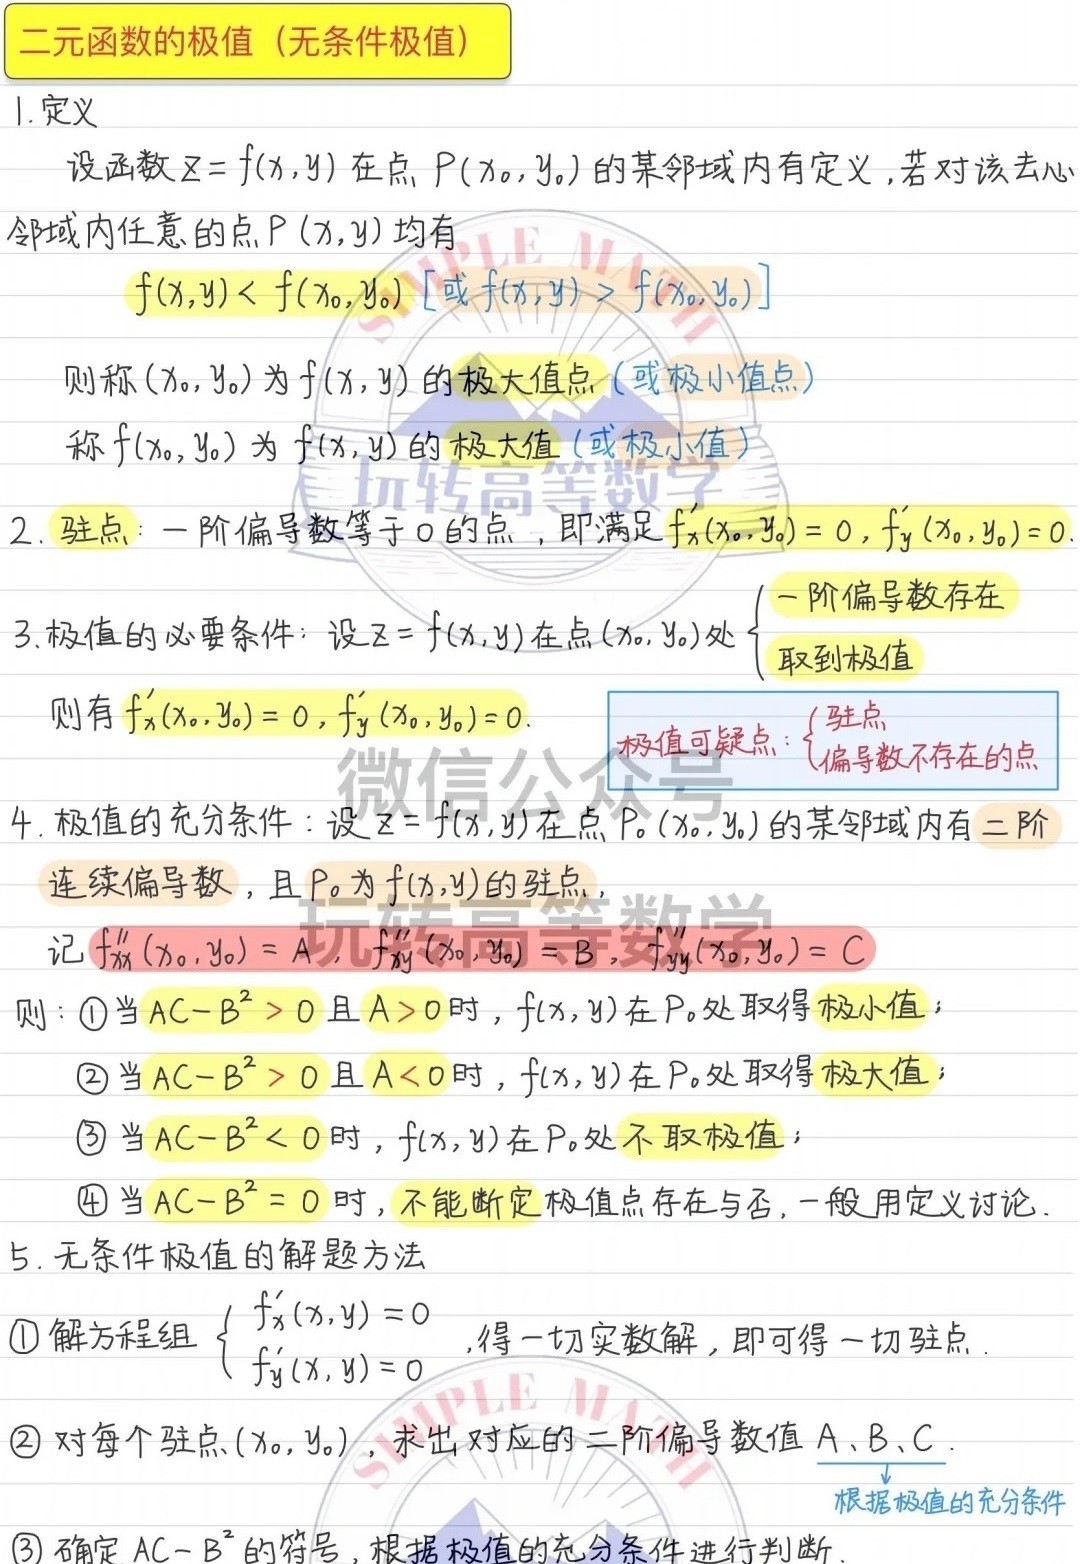 二元函数的极值（无条件极值）
1. 定义
设函数 z = f(x, y) 在点 P(x₀, y₀) 的某邻域内有定义，若对该去心
邻域内任意的点 P(x, y) 均有
f(x, y) < f(x₀, y₀) [或 f(x, y) > f(x₀, y₀)]
则称 (x₀, y₀) 为 f(x, y) 的极大值点（或极小值点）
称 f(x₀, y₀) 为 f(x, y) 的极大值（或极小值）
2. 驻点：一阶偏导数等于0的点，即满足 f′x(x₀, y₀) = 0, f′y(x₀, y₀) = 0.
3. 极值的必要条件：设 z = f(x, y) 在点 (x₀, y₀) 处 { 一阶偏导数存在
取到极值
则有 f′x(x₀, y₀) = 0, f′y(x₀, y₀) = 0.
极值可疑点：{ 驻点
偏导数不存在的点
4. 极值的充分条件：设 z = f(x, y) 在点 P₀(x₀, y₀) 的某邻域内有二阶
连续偏导数，且 P₀ 为 f(x, y) 的驻点，
记 f″xx(x₀, y₀) = A, f″xy(x₀, y₀) = B, f″yy(x₀, y₀) = C
则：① 当 AC－B² > 0 且 A > 0 时，f(x, y) 在 P₀ 处取得极小值；
② 当 AC－B² > 0 且 A < 0 时，f(x, y) 在 P₀ 处取得极大值；
③ 当 AC－B² < 0 时，f(x, y) 在 P₀ 处不取极值；
④ 当 AC－B² = 0 时，不能断定极值点存在与否，一般用定义讨论.
5. 无条件极值的解题方法
① 解方程组 { f′x(x, y) = 0
f′y(x, y) = 0 ，得一切实数解，即可得一切驻点.
② 对每个驻点 (x₀, y₀)，求出对应的二阶偏导数值 A、B、C.
根据极值的充分条件
③ 确定 AC－B² 的符号，根据极值的充分条件进行判断.
SIMPLE MATH
玩转高等数学
微信公众号
玩转高等数学
SIMPLE MATH